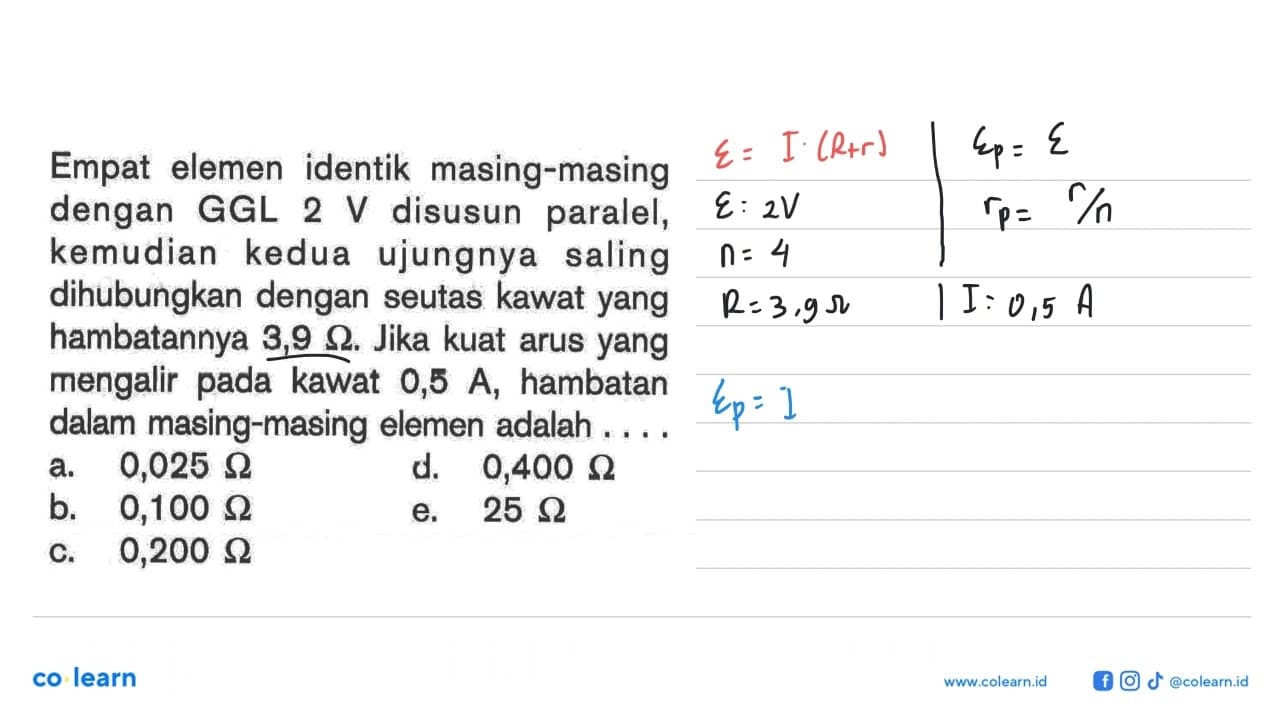 Empat elemen identik masing-masing
dengan GGL 2 V disusun paralel,
kemudian kedua ujungnya saling
dihubungkan dengan seutas kawat yang
hambatannya 3,9 Ω. Jika kuat arus yang
mengalir pada kawat 0,5 A, hambatan
dalam masing-masing elemen adalah . . . .
a. 0,025 Ω d. 0,400 Ω
b. 0,100 Ω e. 25 Ω
c. 0,200 Ω
ε = I . (R+r)
ε : 2V
n = 4
R = 3,9 Ω
εp = ε
rp = r/n
I : 0,5 A
εp = I
co learn
www.colearn.id
@colearn.id